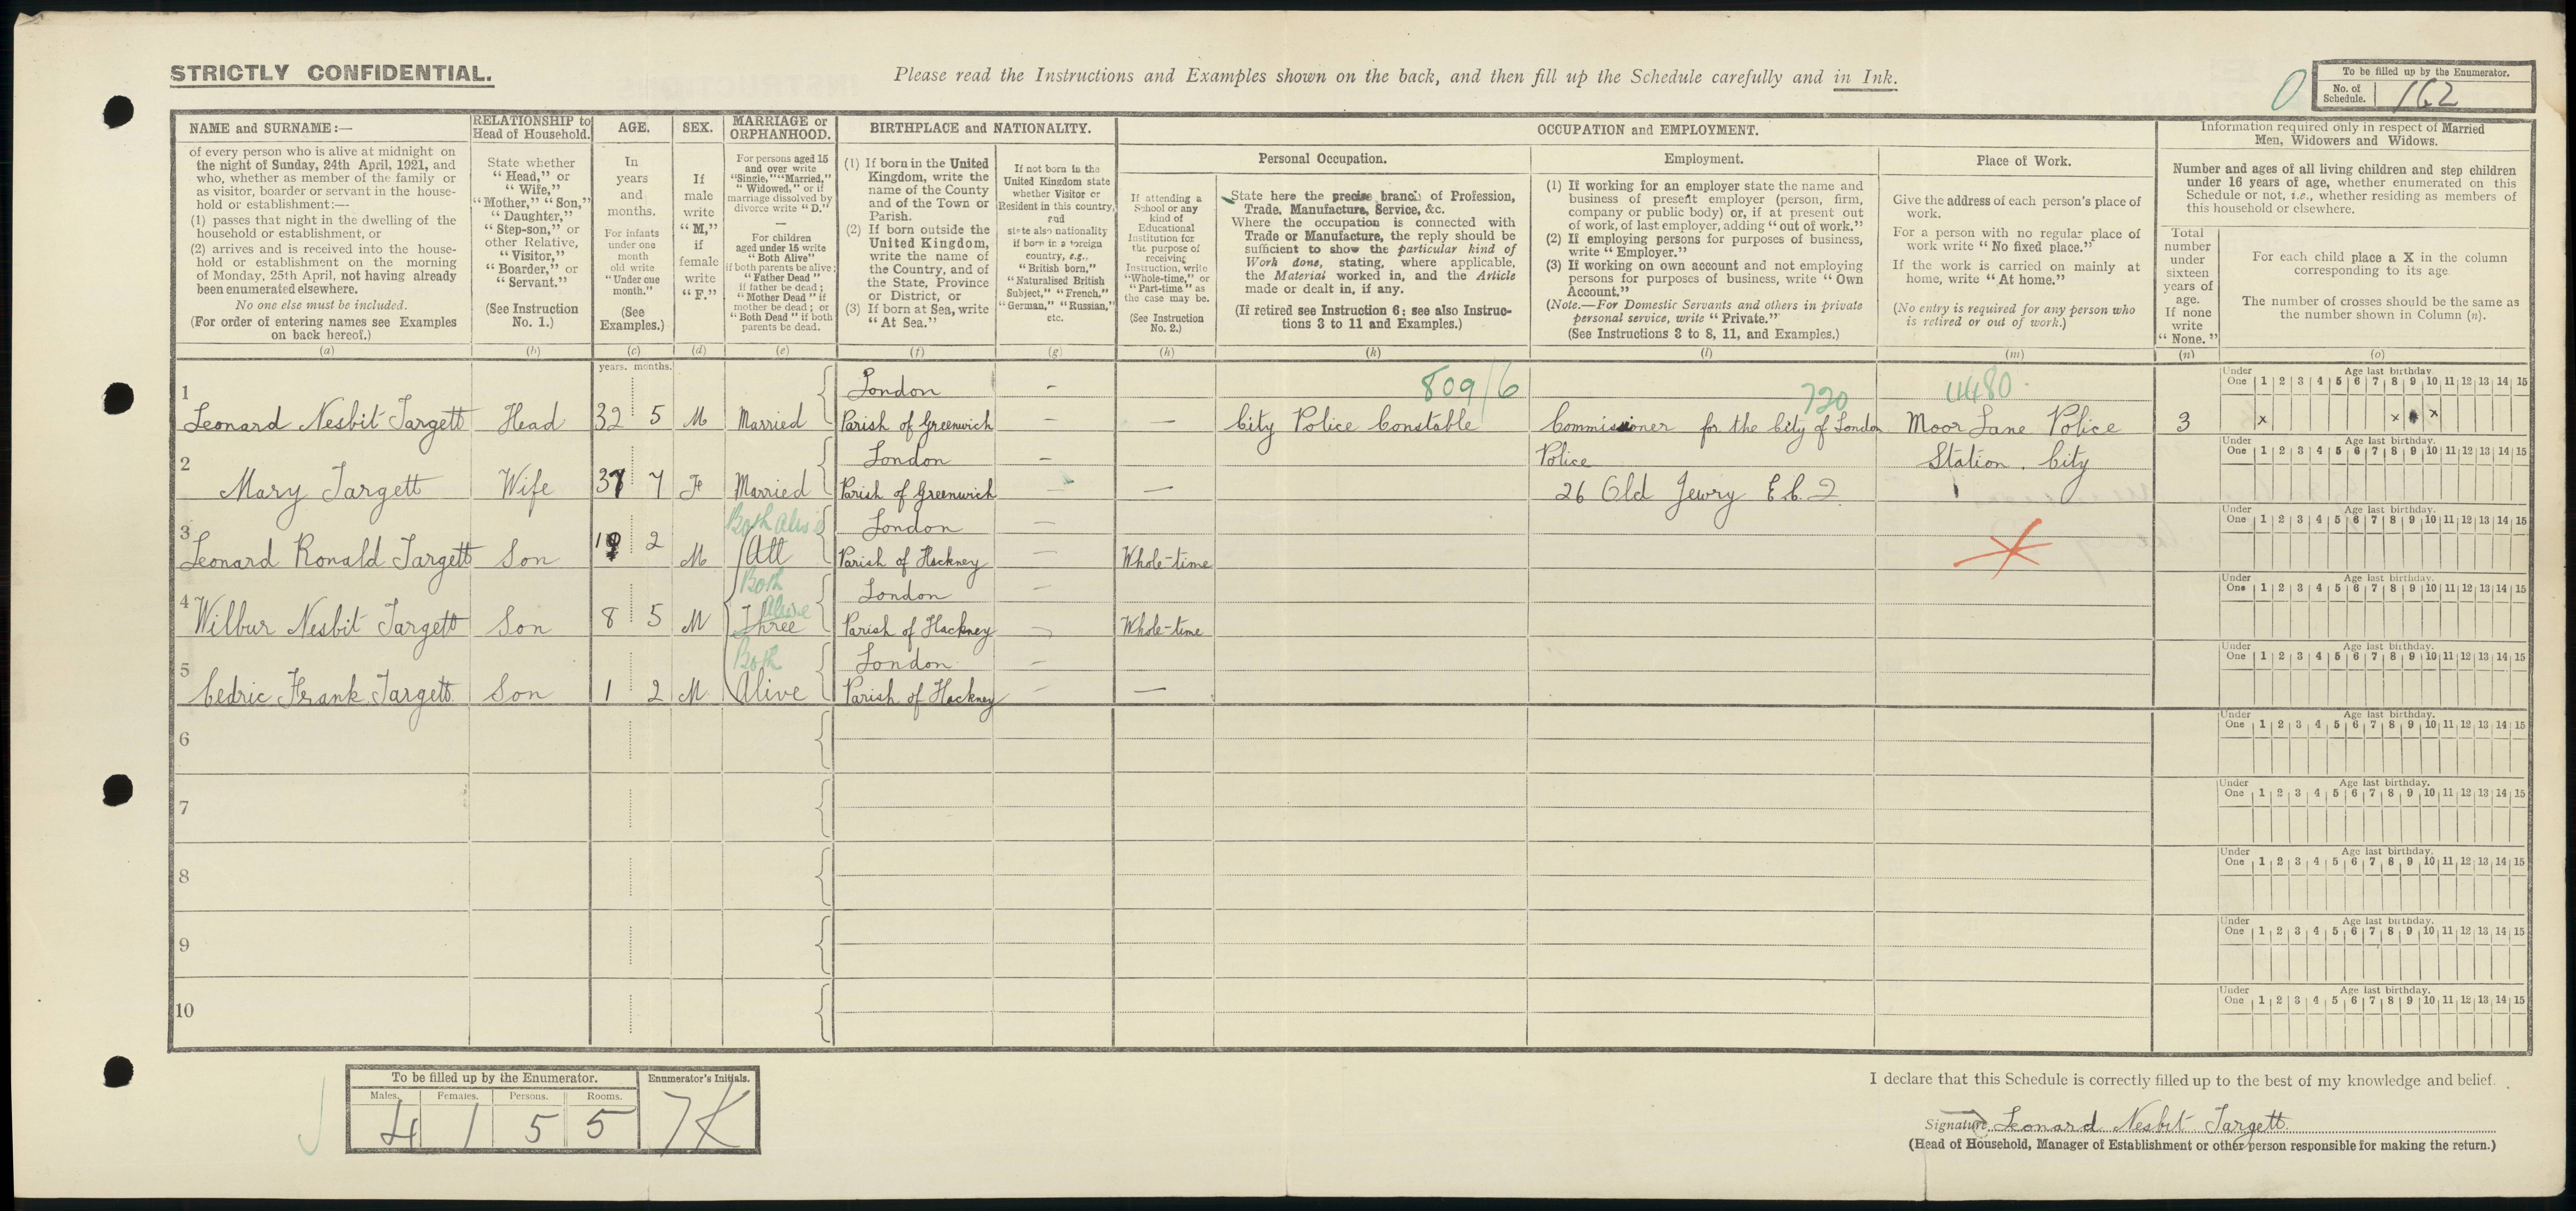 STRICTLY CONFIDENTIAL.
Please read the Instructions and Examples shown on the back, and then fill up the Schedule carefully and in Ink.
0
To be filled up by the Enumerator.
No. of Schedule. 162
NAME and SURNAME:—
of every person who is alive at midnight on
the night of Sunday, 24th April, 1921, and
who, whether as member of the family or
as visitor, boarder or servant in the house-
hold or establishment:—
(1) passes that night in the dwelling of the
household or establishment, or
(2) arrives and is received into the house-
hold or establishment on the morning
of Monday, 25th April, not having already
been enumerated elsewhere.
No one else must be included.
(For order of entering names see Examples
on back hereof.)
(a)
RELATIONSHIP to
Head of Household.
State whether
“Head,” or
“Wife,”
“Mother,” “Son,”
“Daughter,”
“Step-son,” or
other Relative,
“Visitor,”
“Boarder,” or
“Servant.”
(See Instruction
No. 1.)
(b)
AGE.
In
years
and
months.
For infants
under one
month
old write
“Under one
month.”
(See
Examples.)
(c)
SEX.
If
male
write
“M,”
if
female
write
“F.”
(d)
MARRIAGE or
ORPHANHOOD.
For persons aged 15
and over write
“Single,” “Married,”
“Widowed,” or if
marriage dissolved by
divorce write “D.”
—
For children
aged under 15 write
“Both Alive”
if both parents be alive;
“Father Dead”
if father be dead;
“Mother Dead” if
mother be dead; or
“Both Dead” if both
parents be dead.
(e)
BIRTHPLACE and NATIONALITY.
(1) If born in the United
Kingdom, write the
name of the County
and of the Town or
Parish.
(2) If born outside the
United Kingdom,
write the name of
the Country, and of
the State, Province
or District, or
(3) If born at Sea, write
“At Sea.”
(f)
If not born in the
United Kingdom state
whether Visitor or
Resident in this country,
and
state also nationality
if born in a foreign
country, e.g.,
“British born,”
“Naturalised British
Subject,” “French,”
“German,” “Russian,”
etc.
(g)
OCCUPATION and EMPLOYMENT.
If attending a
School or any
kind of
Educational
Institution for
the purpose of
receiving
Instruction, write
“Whole-time,” or
“Part-time,” as
the case may be.
(See Instruction
No. 2.)
(h)
Personal Occupation.
State here the precise branch of Profession,
Trade, Manufacture, Service, &c.
Where the occupation is connected with
Trade or Manufacture, the reply should be
sufficient to show the particular kind of
Work done, stating, where applicable,
the Material worked in, and the Article
made or dealt in, if any.
(If retired see Instruction 6; see also Instruc-
tions 3 to 11 and Examples.)
(k)
Employment.
(1) If working for an employer state the name and
business of present employer (person, firm,
company or public body) or, if at present out
of work, of last employer, adding “out of work.”
(2) If employing persons for purposes of business,
write “Employer.”
(3) If working on own account and not employing
persons for purposes of business, write “Own
Account.”
(Note.—For Domestic Servants and others in private
personal service, write “Private.”
(See Instructions 3 to 8, 11, and Examples.)
(l)
Place of Work.
Give the address of each person’s place of
work.
For a person with no regular place of
work write “No fixed place.”
If the work is carried on mainly at
home, write “At home.”
(No entry is required for any person who
is retired or out of work.)
(m)
Information required only in respect of Married
Men, Widowers and Widows.
Number and ages of all living children and step children
under 16 years of age, whether enumerated on this
Schedule or not, i.e., whether residing as members of
this household or elsewhere.
Total
number
under
sixteen
years of
age.
If none
write
“None.”
(n)
For each child place a X in the column
corresponding to its age.
The number of crosses should be the same as
the number shown in Column (n).
(o)
years. months.
1 London - 809/6 720 4480
Leonard Nesbit Targett Head 32 5 M Married Parish of Greenwich — — City Police Constable Commissioner for the City of London Moor Lane Police 3 x x x
2 London - Police Station. City
Mary Targett Wife 37 7 F Married Parish of Greenwich — — 26 Old Jewry E.C.2
3 Both Alive London —
Leonard Ronald Targett Son 10 2 M All Parish of Hackney — Whole-time
4 Both Alive London —
Wilbur Nesbit Targett Son 8 5 M Three Parish of Hackney — Whole-time
5 Both London —
Cedric Frank Targett Son 1 2 M Alive Parish of Hackney — —
6
7
8
9
10
Under One Age last birthday. 1 2 3 4 5 6 7 8 9 10 11 12 13 14 15
Under One Age last birthday. 1 2 3 4 5 6 7 8 9 10 11 12 13 14 15
Under One Age last birthday. 1 2 3 4 5 6 7 8 9 10 11 12 13 14 15
Under One Age last birthday. 1 2 3 4 5 6 7 8 9 10 11 12 13 14 15
Under One Age last birthday. 1 2 3 4 5 6 7 8 9 10 11 12 13 14 15
Under One Age last birthday. 1 2 3 4 5 6 7 8 9 10 11 12 13 14 15
Under One Age last birthday. 1 2 3 4 5 6 7 8 9 10 11 12 13 14 15
Under One Age last birthday. 1 2 3 4 5 6 7 8 9 10 11 12 13 14 15
Under One Age last birthday. 1 2 3 4 5 6 7 8 9 10 11 12 13 14 15
Under One Age last birthday. 1 2 3 4 5 6 7 8 9 10 11 12 13 14 15
To be filled up by the Enumerator. Enumerator’s Initials.
Males. Females. Persons. Rooms.
4 1 5 5
I declare that this Schedule is correctly filled up to the best of my knowledge and belief.
Signature Leonard Nesbit Targett
(Head of Household, Manager of Establishment or other person responsible for making the return.)